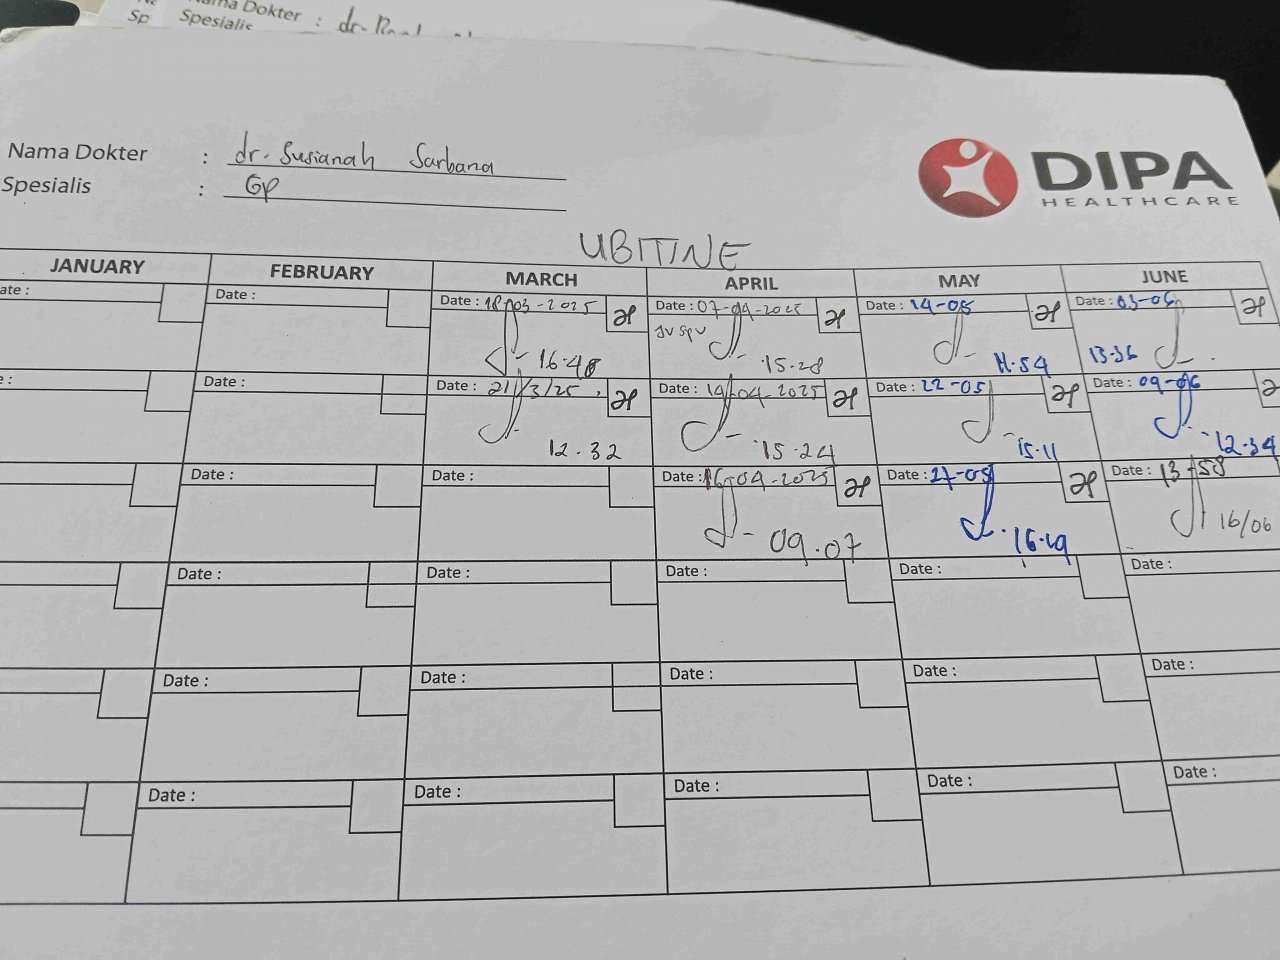 Nama Dokter : dr.
Spesialis
Sp
Spesialis
Nama Dokter : dr. Susianah Sarbana
Spesialis : GP
DIPA
HEALTHCARE
UBITINE
JANUARY FEBRUARY MARCH APRIL MAY JUNE
ate : Date : Date : 18-03-2025 Date : 07-04-2025 Date : 14-05 Date : 03-06
16.48 15.28 11.54 13.36
: Date : Date : 21/3/25 Date : 14-04-2025 Date : 22-05 Date : 09-06
12.32 15.24 15.11 12.34
Date : Date : Date : 16-04-2025 Date : 27-05 Date : 13.58
09.07 16.19 16/06
Date : Date : Date : Date : Date :
Date : Date : Date : Date : Date :
Date : Date : Date : Date : Date :